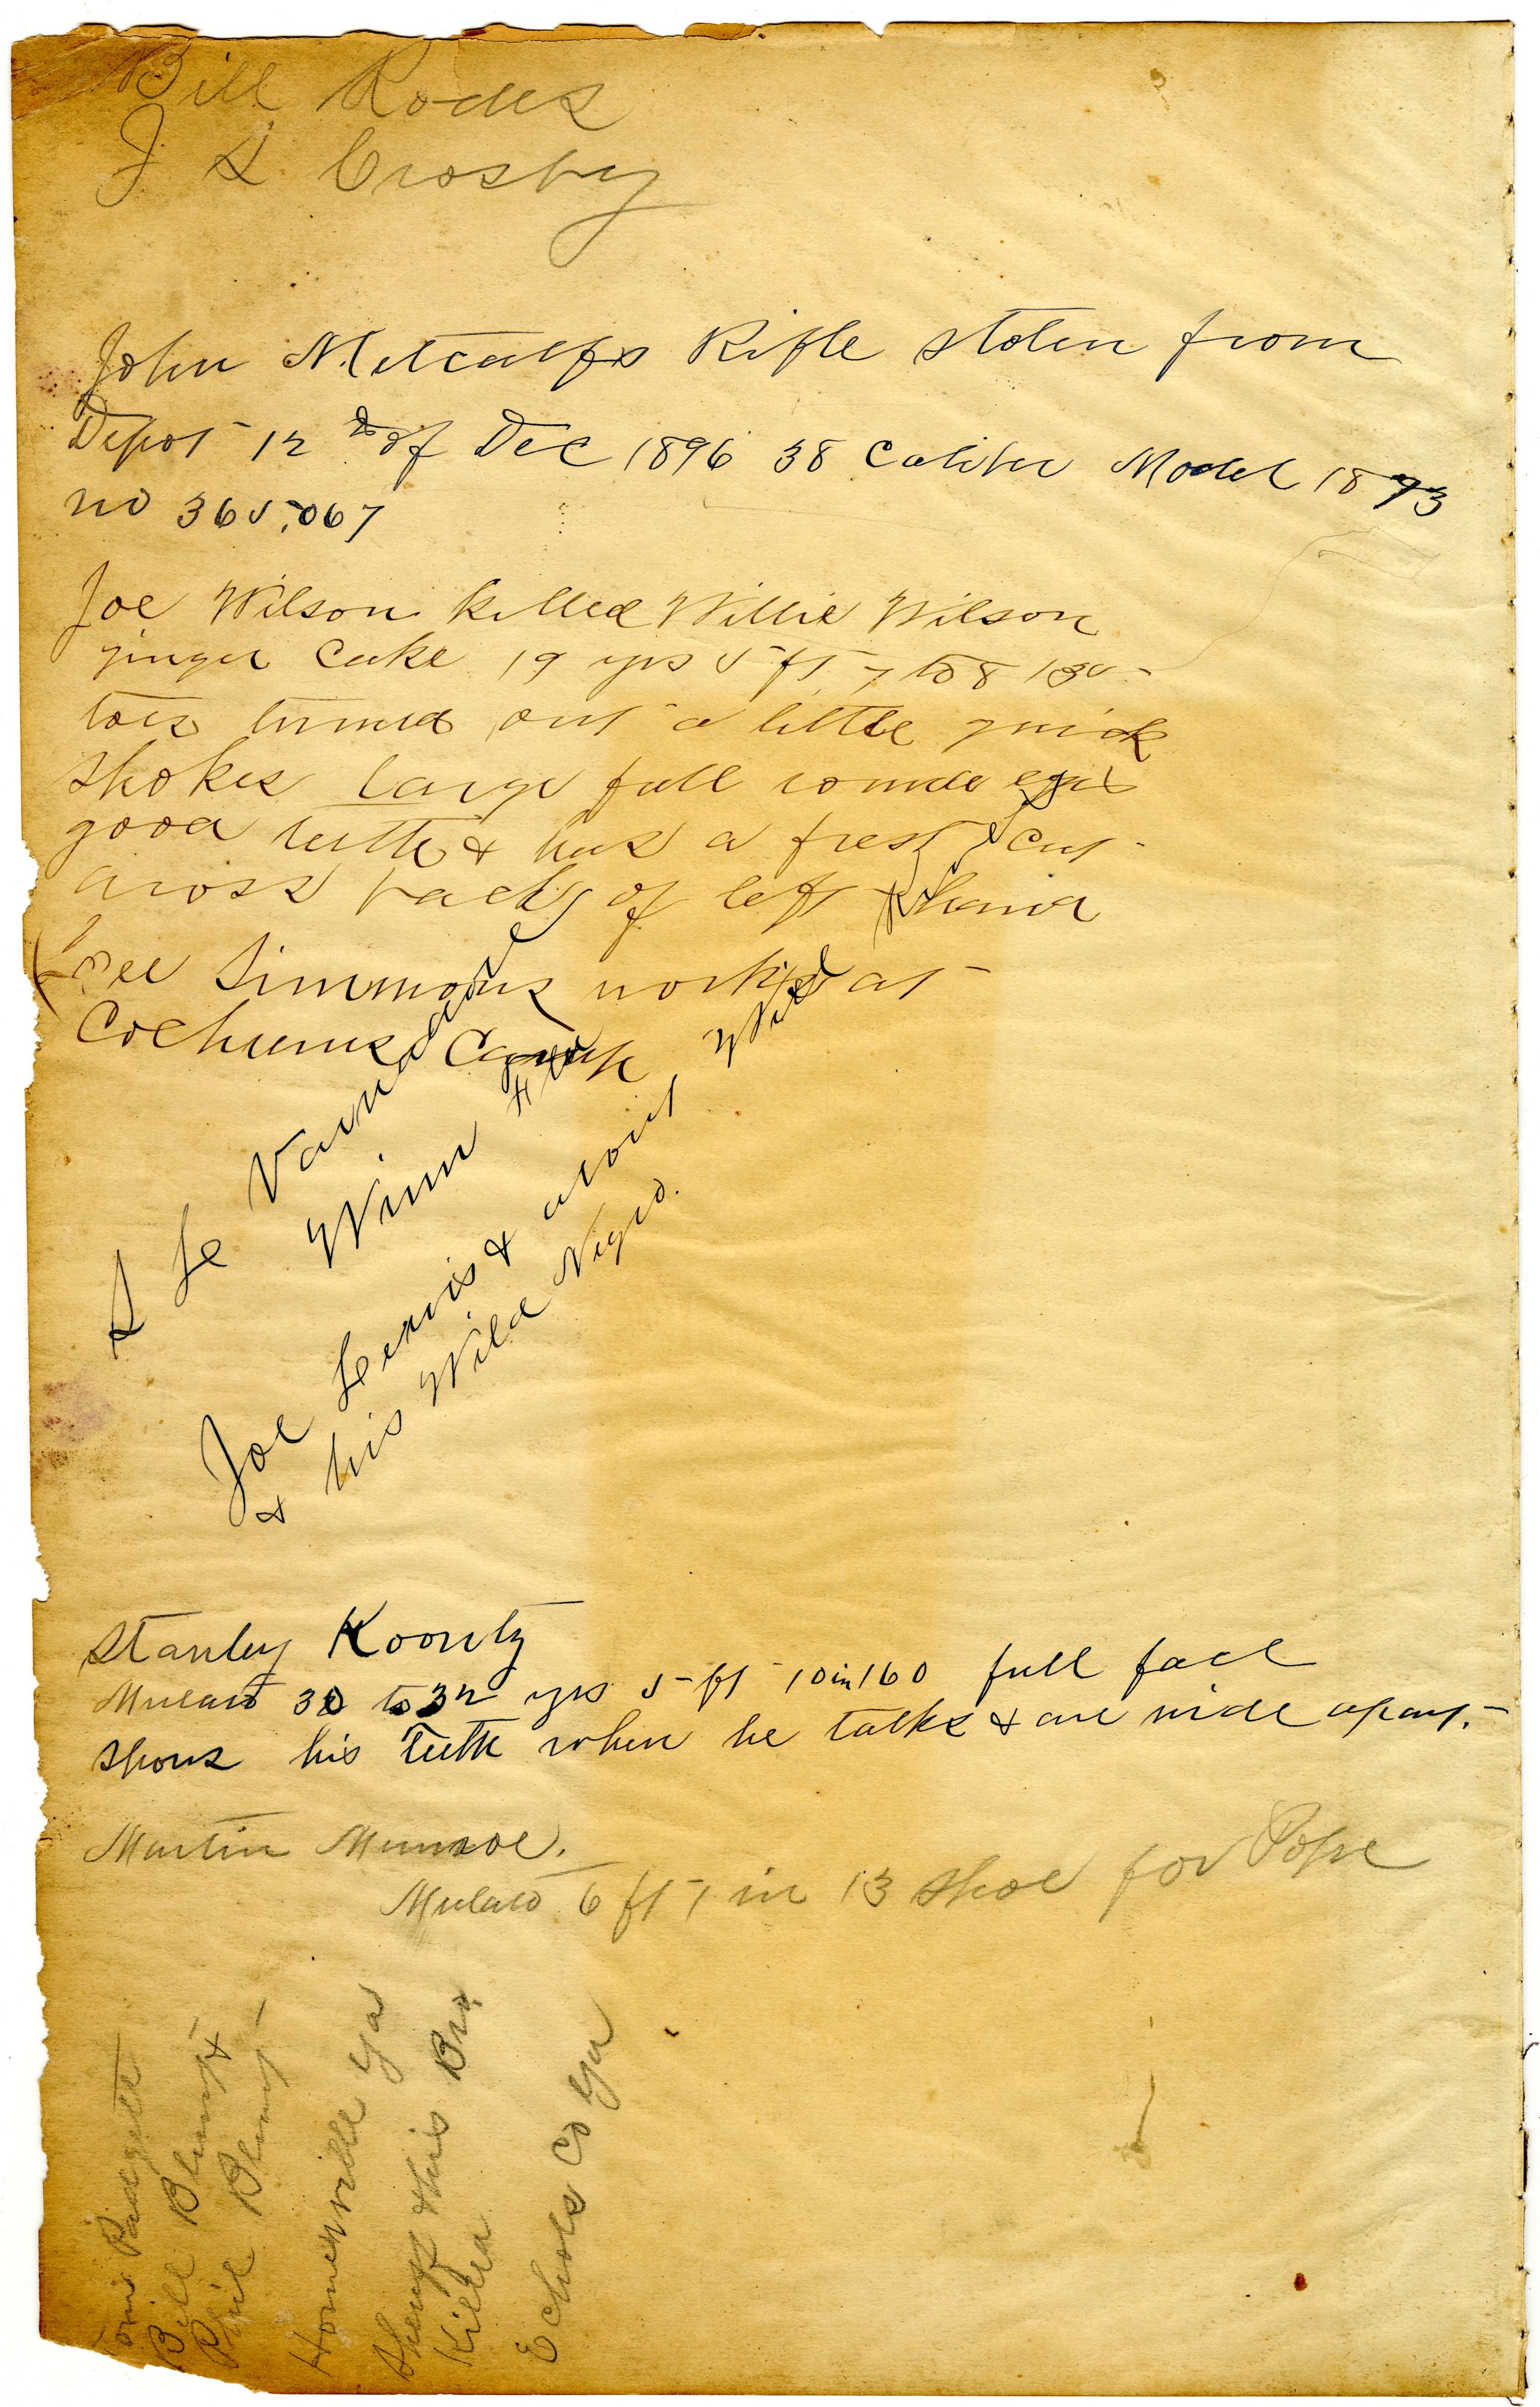 Bill Rodes
J S Crosby
John Metcalfs Rifle stolen from
Depot 12 of Dec 1896 38 Caliber Model 1873
no 365,067
Joe Wilson killed Willie Wilson
ginger Cake 19 yrs 5 ft 7 to 8 130
toes turned out a little quick
spoken large full round eyes
good teeth & has a fresh cut
across back of left hand
See Simmons works at
Camp
S L Varnadore
Winn
Joe Lewis & about Wild
& his Wild Negro.
Stanley Koontz
Mulato 30 to 32 yrs 5 ft 10 in 160 full face
shows his teeth when he talks & are wide apart.
Martin Munroe.
Mulato 6 ft 1 in 13 shoe for Pope
Tom Padgett
Bill Blunt &
Phil Blunt
Homerville Ga
Sheriff & his Bro.
Killed
Echols Co Ga